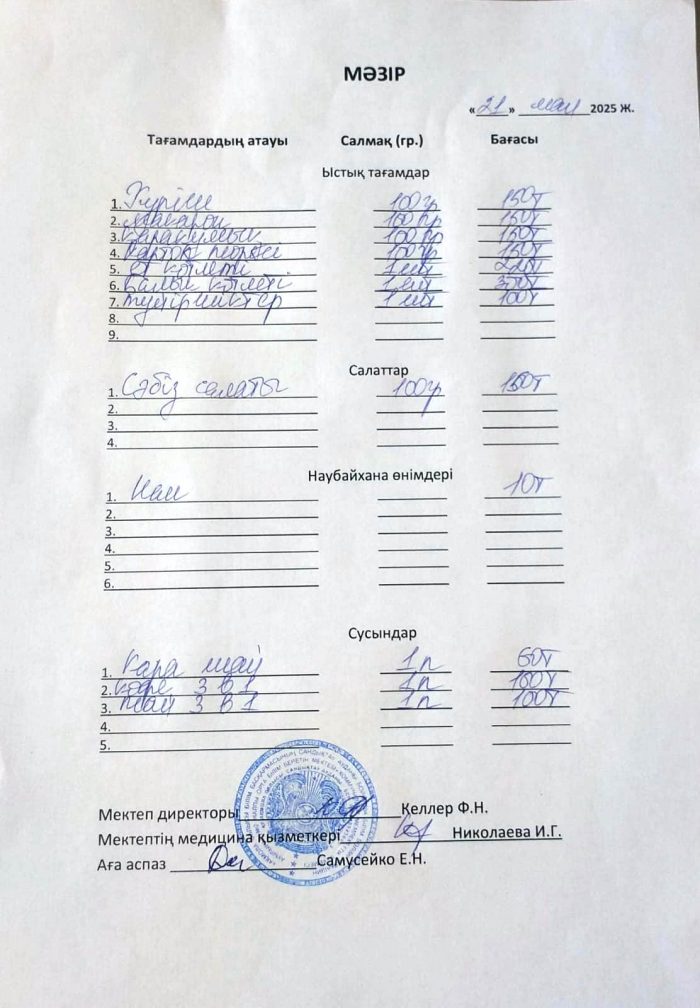 МӘЗІР
« 21 » май 2025 Ж.
Тағамдардың атауы Салмақ (гр.) Бағасы
Ыстық тағамдар
1. Күріш 100гр 150т
2. Макарон 100гр 150т
3. Қарақұмық 100гр 150т
4. Картоп пюресі 100гр 150т
5. Ет котлеті 1 шт
6. Балық котлеті 1 шт 300т
7. Түйіршіктер 1 шт 100т
8.
9.
Салаттар
1. Сәбіз салаты 100гр 150т
2.
3.
4.
Наубайхана өнімдері
1. Нан 10т
2.
3.
4.
5.
6.
Сусындар
1. Қара шай 1п 60т
2. кофе 3 в 1 1п 100т
3. шай 3 в 1 1п 100т
4.
5.
Мектеп директоры Келлер Ф.Н.
Мектептің медицина қызметкері Николаева И.Г.
Аға аспаз Самусейко Е.Н.